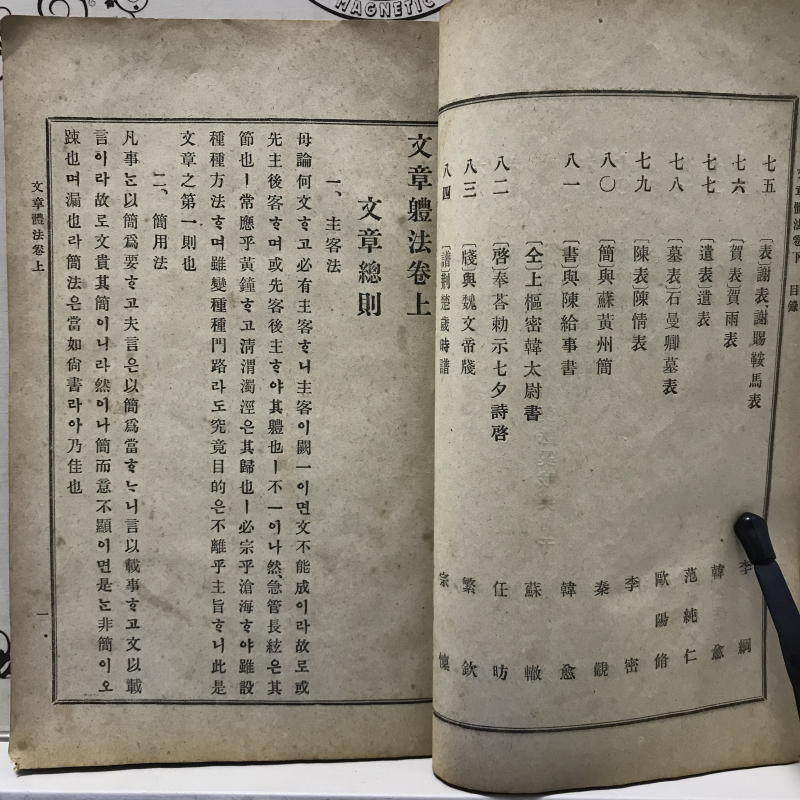 MAGNETIC
文章體法卷下 目錄
七五 [表]謝表、謝賜鞍馬表 李綱
七六 [賀表]賀雨表 韓愈
七七 [遺表]遺表 范純仁
七八 [墓表]石曼卿墓表 歐陽脩
七九 [陳表]陳情表 李密
八〇 [簡]與蘇黃州簡 秦觀
八一 [書]與陳給事書 韓愈
[仝]上樞密韓太尉書 蘇轍
八二 [啓]奉荅勅示七夕詩啓 任昉
八三 [牋]與魏文帝牋 繁欽
八四 [譜]荆楚歲時譜 宗懍
文章軆法卷上
文章總則
一、主客法
毋論何文ᄒᆞ고必有主客ᄒᆞ니主客이闕一이면文不能成이라故로或
先主後客ᄒᆞ며或先客後主ᄒᆞ야其軆也ㅣ不一이나然、急管長絃은其
節也ㅣ常應乎黃鐘ᄒᆞ고淸渭濁涇은其歸也ㅣ必宗乎滄海ᄒᆞ야雖設
種種方法ᄒᆞ며雖變種種門路라도究竟目的은不離乎主旨ᄒᆞ니此是
文章之第一則也
二、簡用法
凡事ᄂᆞᆫ以簡爲要ᄒᆞ고夫言은以簡爲當ᄒᆞᄂᆞ니言以載事ᄒᆞ고文以載
言이라故로文貴其簡이니라然이나簡而意不顯이면是ᄂᆞᆫ非簡이오
踈也며漏也라簡法은當如尙書라아乃佳也
文章體法卷上
一